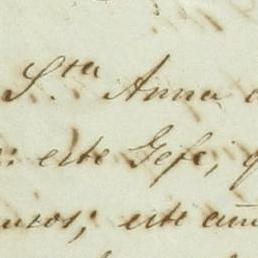 S.ta Anna
: este Gefe,
uros; este